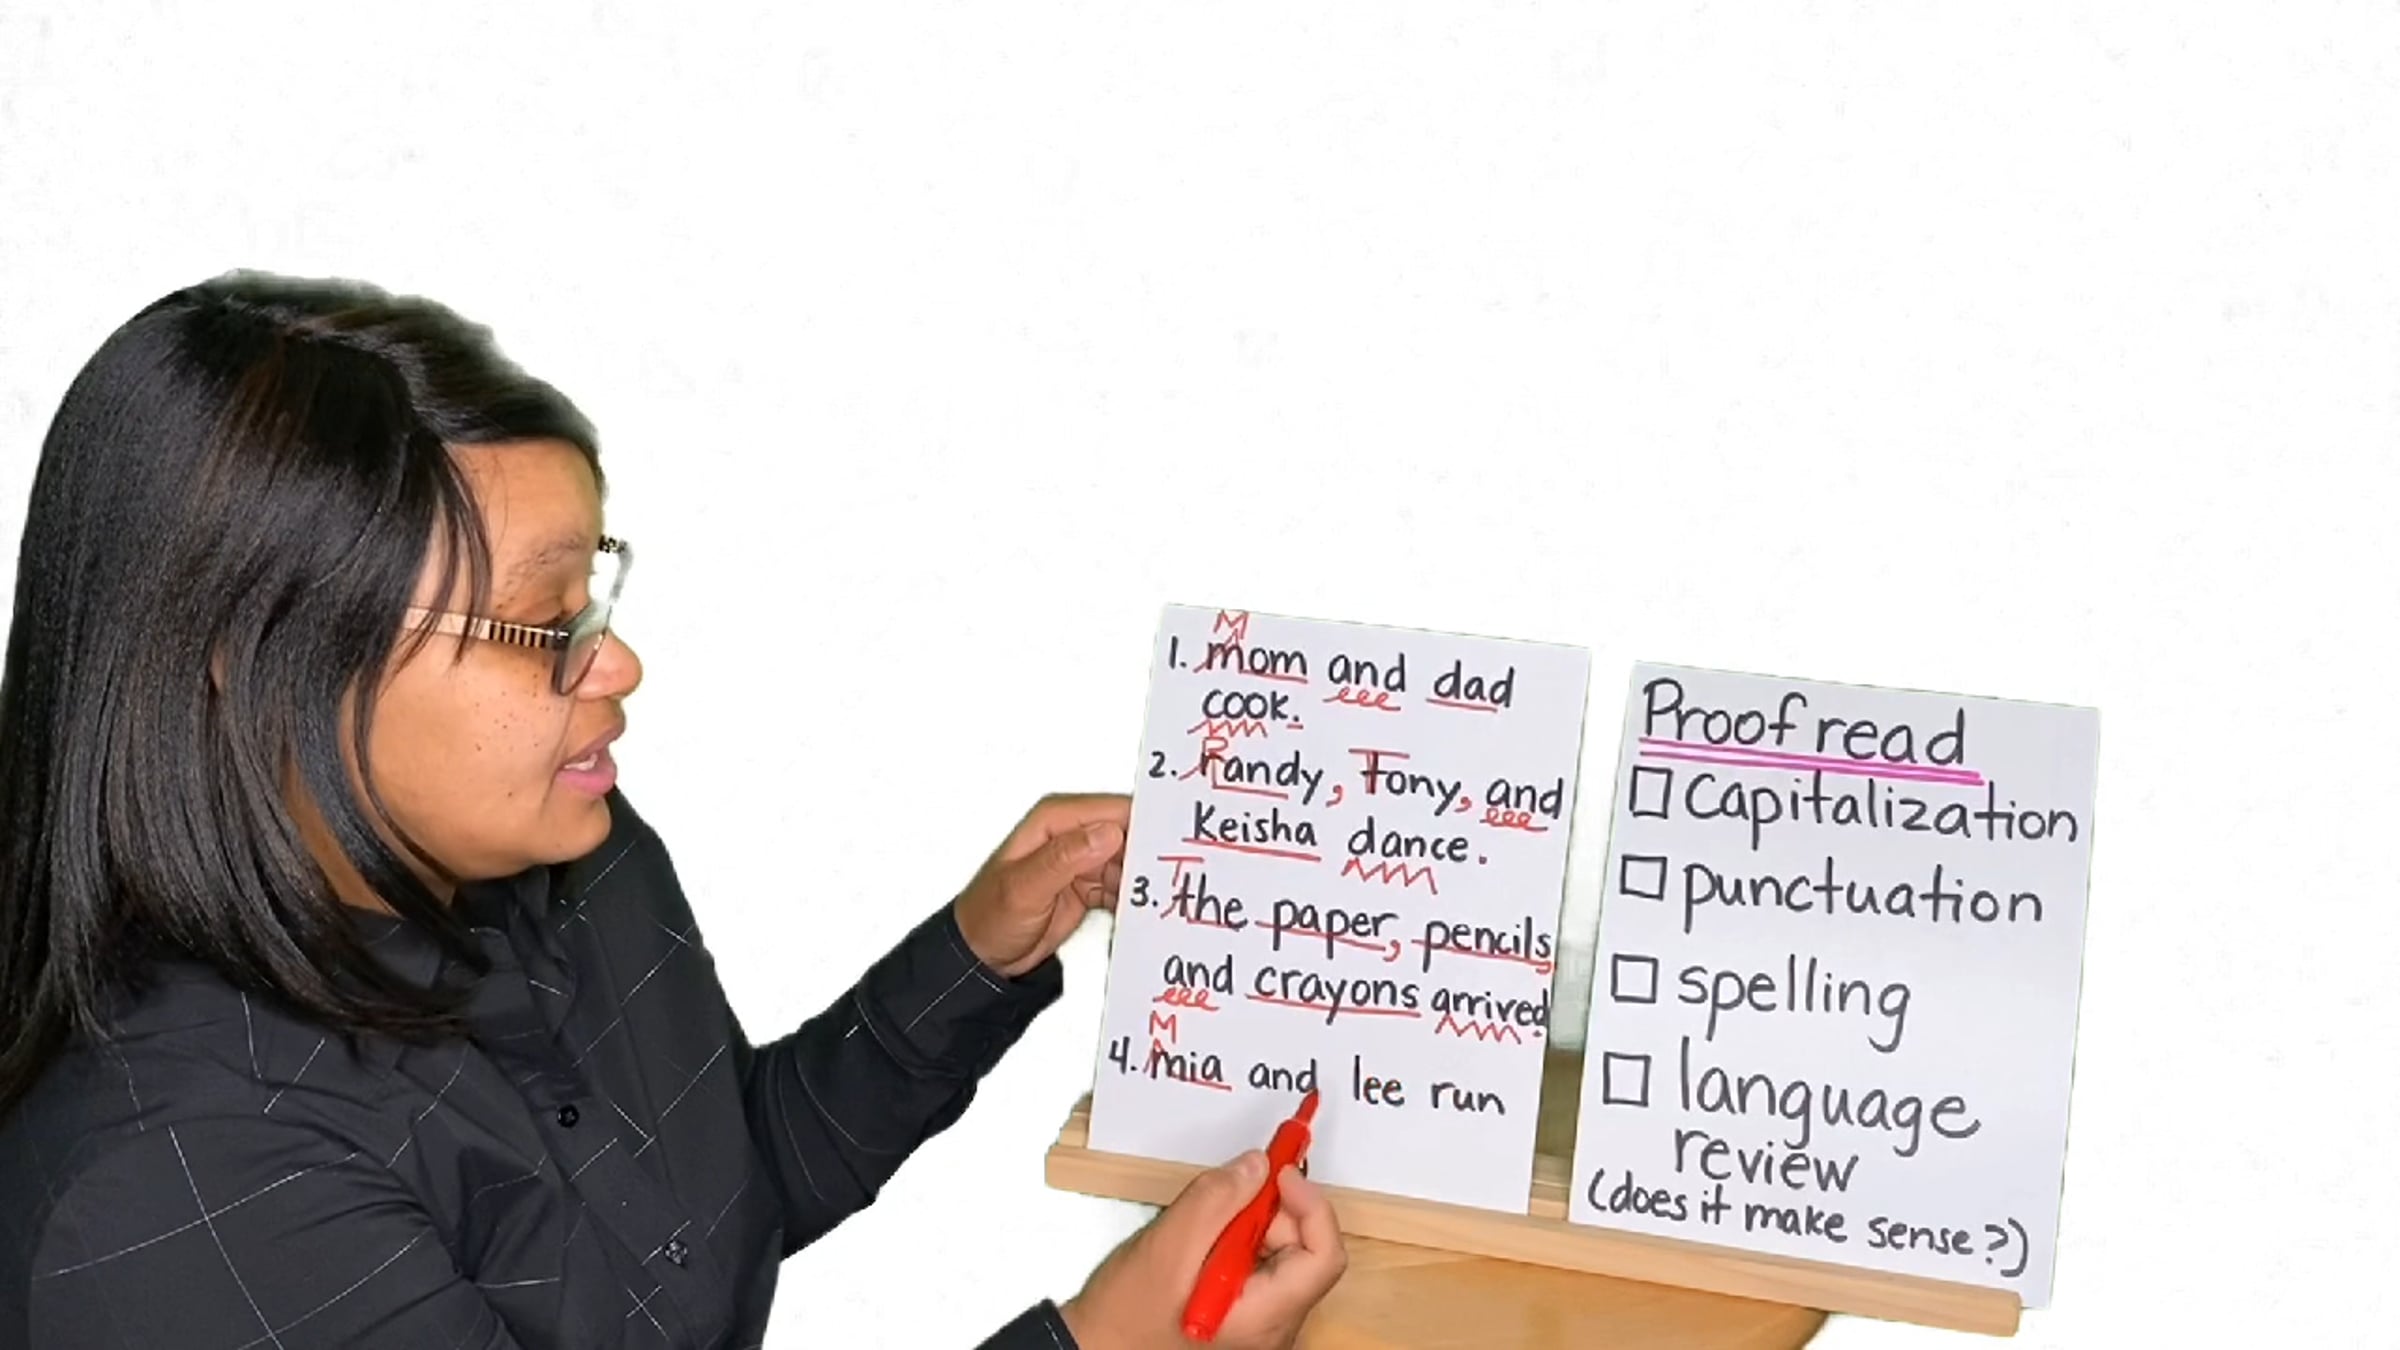 M
1. mom and dad
cook.
R T
2. randy, Tony, and
Keisha dance.
T
3. the paper, pencils,
and crayons arrived.
M
4. mia and lee run
Proofread
Capitalization
punctuation
spelling
language
review
(does it make sense?)